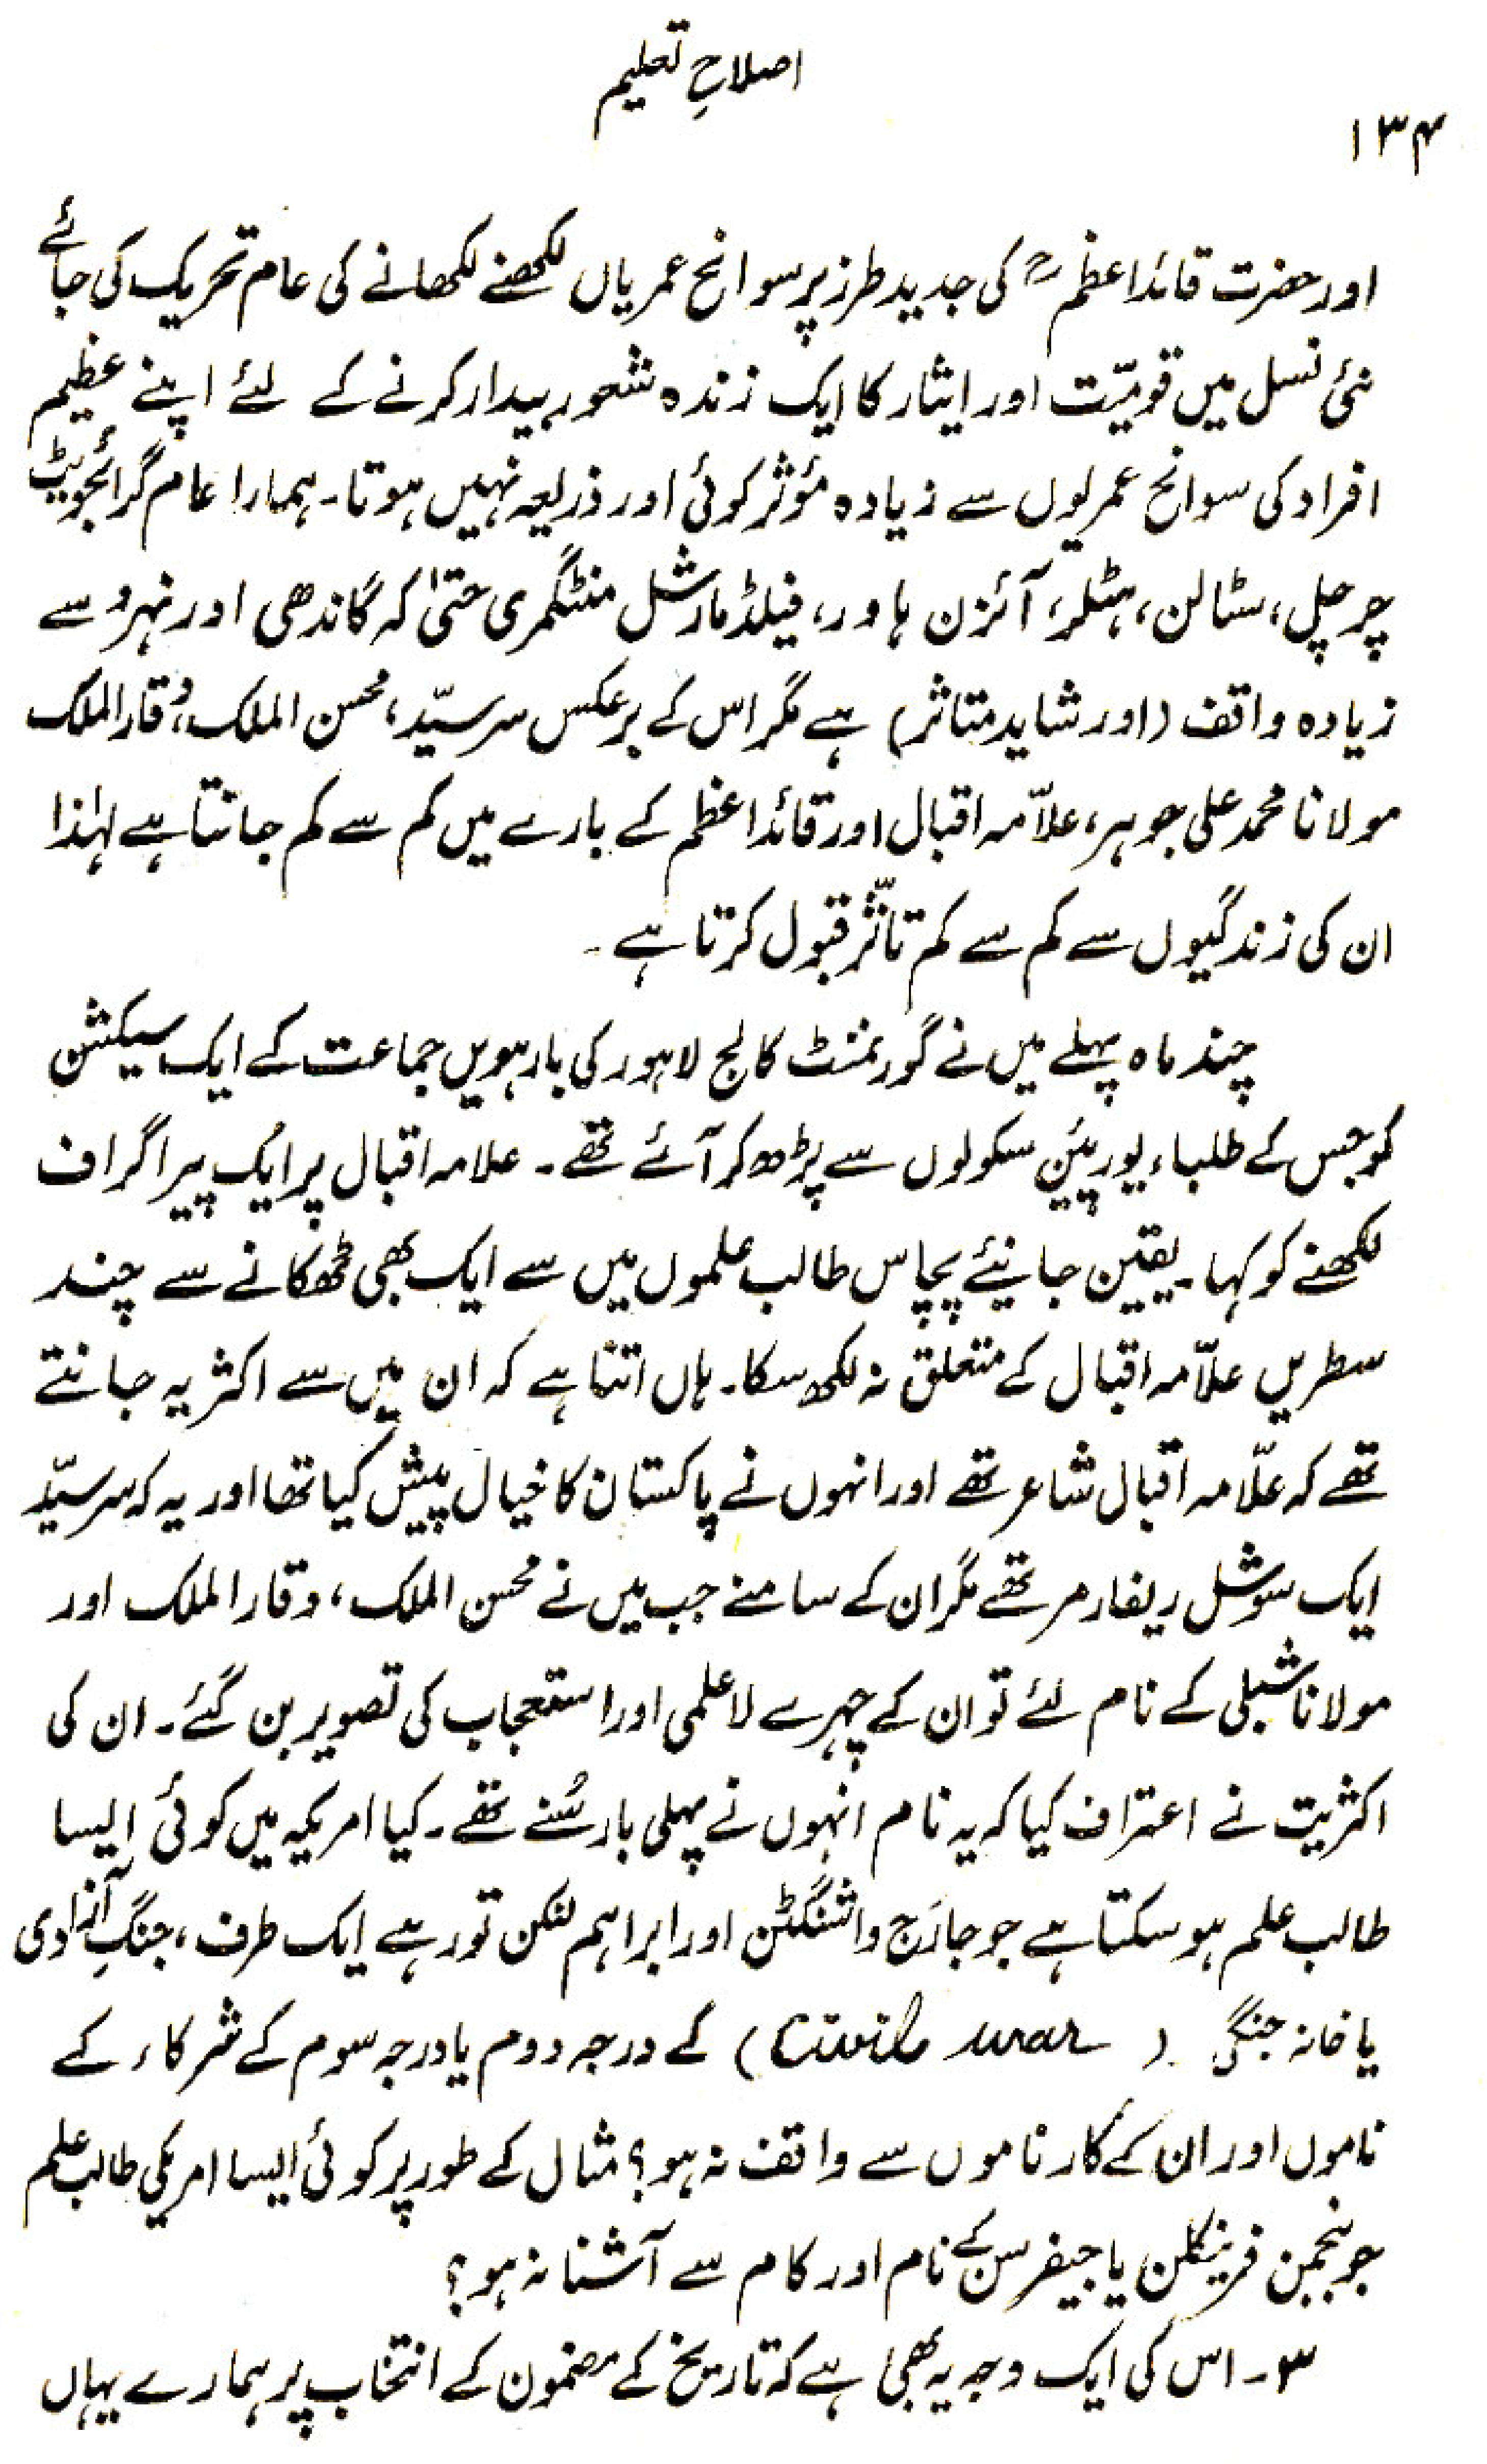 اصلاحِ تعلیم
۱۳۴
اور حضرت قائداعظمؒ کی جدید طرز پر سوانح عمریاں لکھنے لکھانے کی عام تحریک کی جائے
نئی نسل میں قومیّت اور ایثار کا ایک زندہ شعور بیدار کرنے کے لئے اپنے عظیم
افراد کی سوانح عمریوں سے زیادہ مؤثر کوئی اور ذریعہ نہیں ہوتا۔ ہمارا عام گرائجویٹ
چرچل، سٹالن، ہٹلر، آئزن ہاور، فیلڈ مارشل منٹگمری حتیٰ کہ گاندھی اور نہرو سے
زیادہ واقف (اور شاید متاثر) ہے مگر اس کے برعکس سرسیّد، محسن الملک، وقار الملک
مولانا محمد علی جوہر، علاّمہ اقبال اور قائداعظم کے بارے میں کم سے کم جانتا ہے لہٰذا
ان کی زندگیوں سے کم سے کم تاثّر قبول کرتا ہے۔
چند ماہ پہلے میں نے گورنمنٹ کالج لاہور کی بارہویں جماعت کے ایک سیکشن
کو جس کے طلباء یورپیئن سکولوں سے پڑھ کر آئے تھے۔ علامہ اقبال پر ایک پیراگراف
لکھنے کو کہا۔ یقین جانیئے پچاس طالب علموں میں سے ایک بھی ٹھکانے سے چند
سطریں علاّمہ اقبال کے متعلق نہ لکھ سکا۔ ہاں اتنا ہے کہ ان میں سے اکثر یہ جانتے
تھے کہ علاّمہ اقبال شاعر تھے اور انہوں نے پاکستان کا خیال پیش کیا تھا اور یہ کہ سرسیّد
ایک سوشل ریفارمر تھے مگر ان کے سامنے جب میں نے محسن الملک، وقار الملک اور
مولانا شبلی کے نام لئے تو ان کے چہرے لاعلمی اور استعجاب کی تصویر بن گئے۔ ان کی
اکثریت نے اعتراف کیا کہ یہ نام انہوں نے پہلی بار سُنے تھے۔ کیا امریکہ میں کوئی ایسا
طالب علم ہو سکتا ہے جو جارَج واشنگٹن اور ابراہم لنکن تو رہے ایک طرف، جنگِ آزادی
یا خانہ جنگی (Civil war) کے درجہ دوم یا درجہ سوم کے شرکاء کے
ناموں اور ان کے کارناموں سے واقف نہ ہو؟ مثال کے طور پر کوئی ایسا امریکی طالب علم
جو بنجمن فرینکلن یا جیفرسن کے نام اور کام سے آشنا نہ ہو؟
۳۔ اس کی ایک وجہ یہ بھی ہے کہ تاریخ کے مضمون کے انتخاب پر ہمارے یہاں